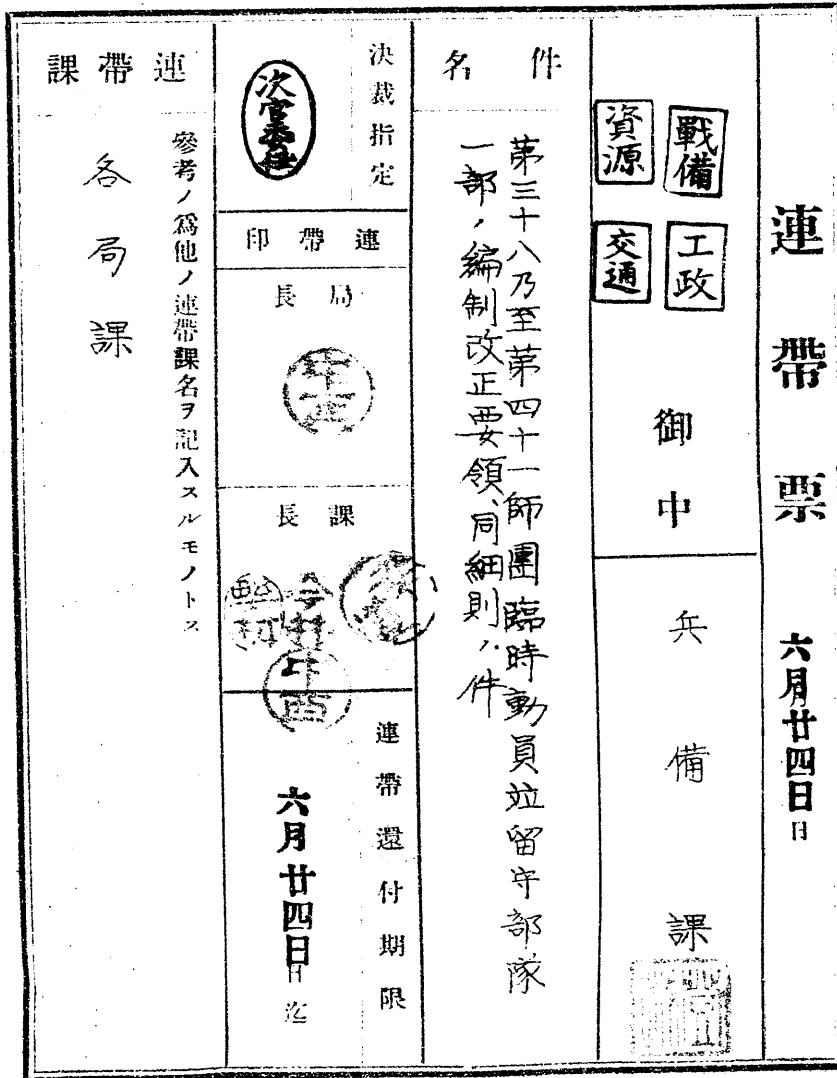 連帶票
六月廿四日日
戰備
工政
資源
交通
御中
兵備課
件名
第三十八乃至第四十一師團臨時動員竝留守部隊
一部ノ編制改正要領、同細則ノ件
決裁指定
次官委任
連帶印
局長
課長
連帶還付期限
六月廿四日日迄
連帶課
參考ノ爲他ノ連帶課名ヲ記入スルモノトス
各局課